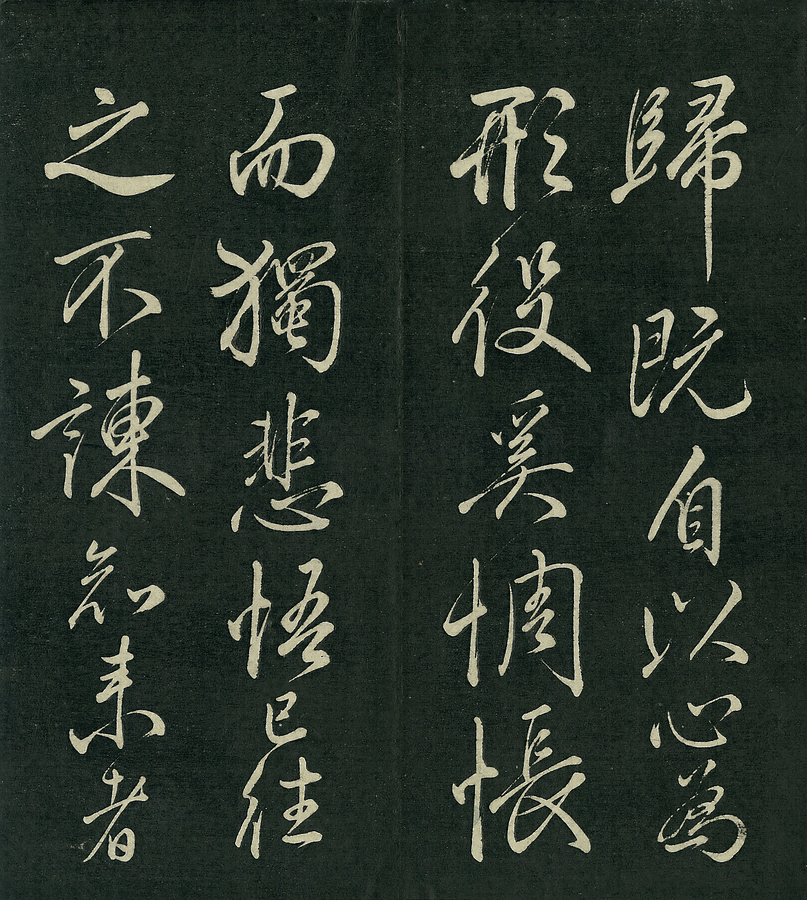 歸既自以心為
形役奚惆悵
而獨悲悟已往
之不諫知来者